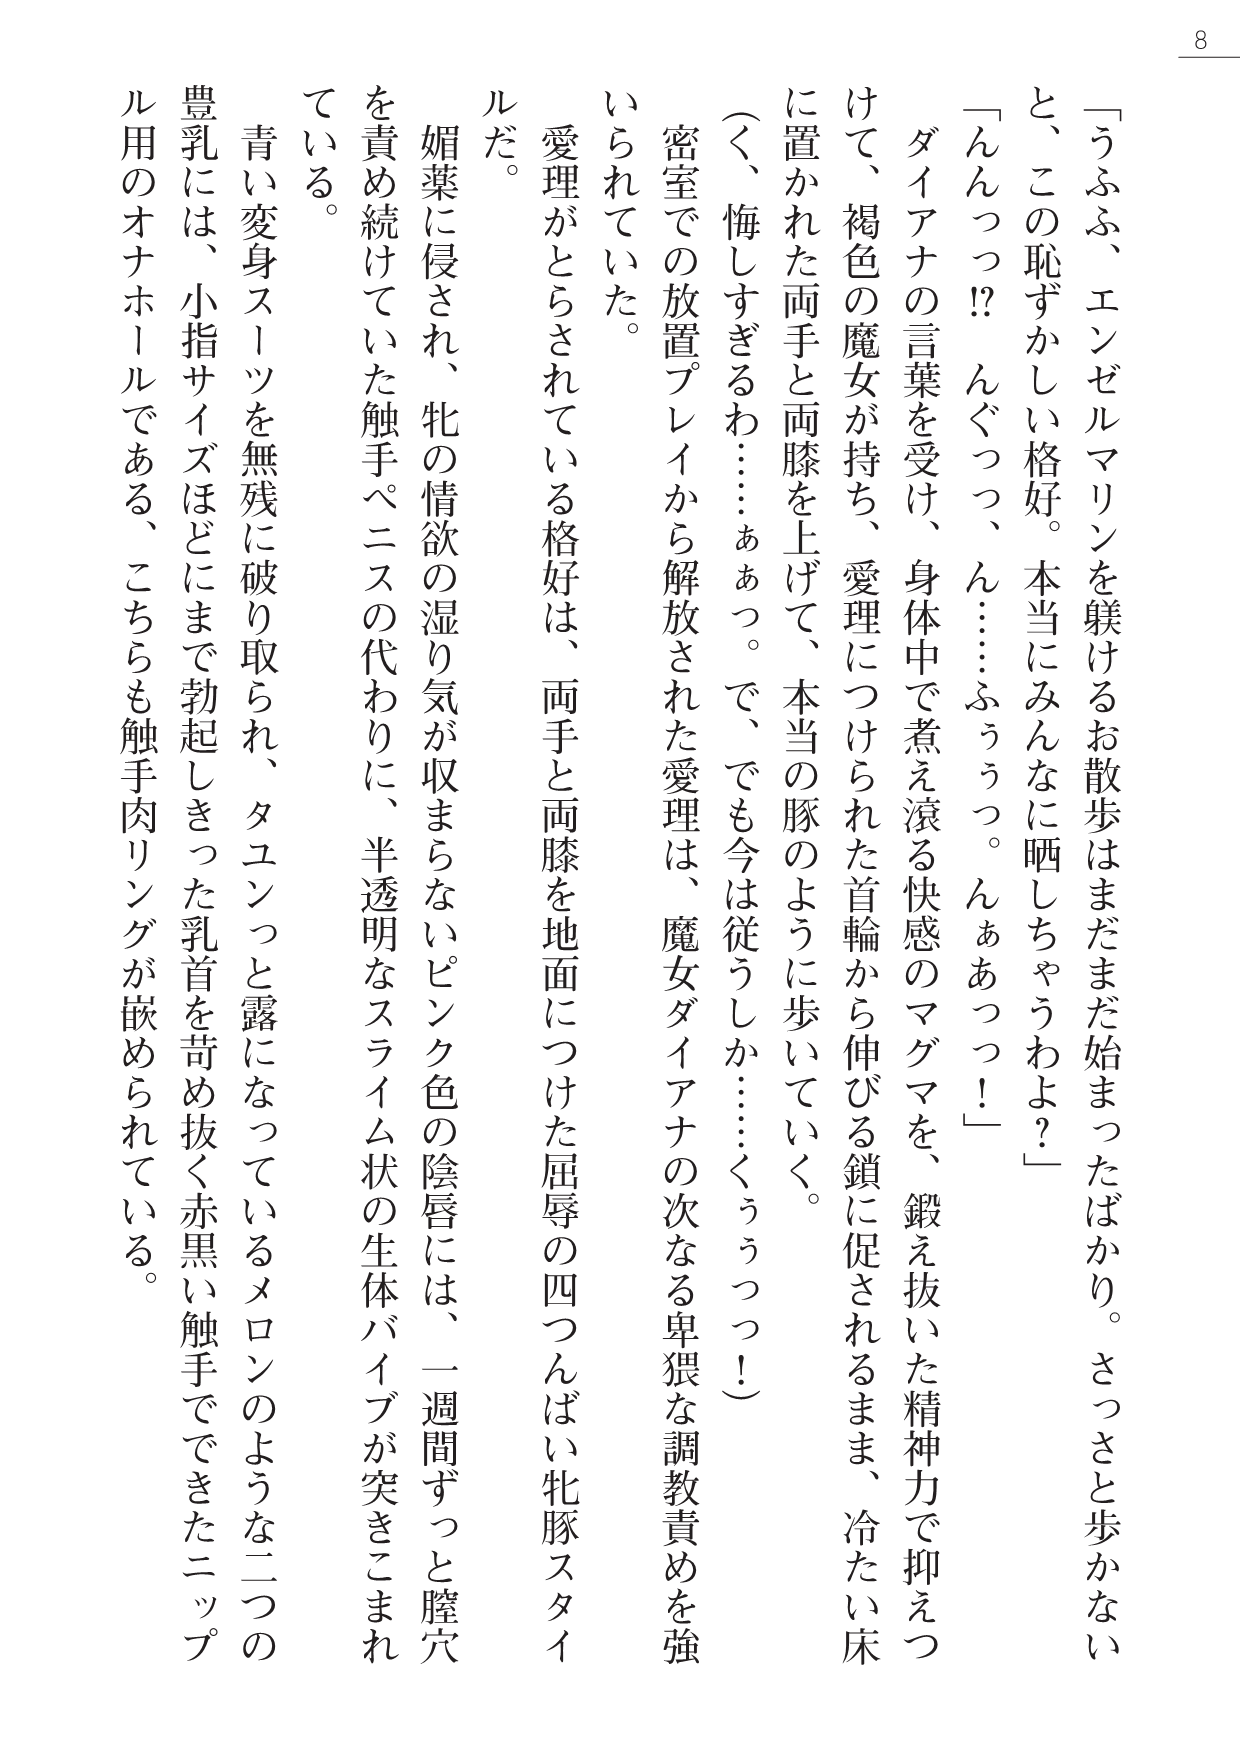 8
「うふふ、エンゼルマリンを躾けるお散歩はまだまだ始まったばかり。さっさと歩かない
と、この恥ずかしい格好。本当にみんなに晒しちゃうわよ？」
「んんっっ!?　んぐっっ、ん……ふぅぅっ。んぁあっっ！」
　ダイアナの言葉を受け、身体中で煮え滾る快感のマグマを、鍛え抜いた精神力で抑えつ
けて、褐色の魔女が持ち、愛理につけられた首輪から伸びる鎖に促されるまま、冷たい床
に置かれた両手と両膝を上げて、本当の豚のように歩いていく。
（く、悔しすぎるわ……ぁぁっ。で、でも今は従うしか……くぅぅっっ！）
　密室での放置プレイから解放された愛理は、魔女ダイアナの次なる卑猥な調教責めを強
いられていた。
　愛理がとらされている格好は、両手と両膝を地面につけた屈辱の四つんばい牝豚スタイ
ルだ。
　媚薬に侵され、牝の情欲の湿り気が収まらないピンク色の陰唇には、一週間ずっと膣穴
を責め続けていた触手ペニスの代わりに、半透明なスライム状の生体バイブが突きこまれ
ている。
　青い変身スーツを無残に破り取られ、タユンっと露になっているメロンのような二つの
豊乳には、小指サイズほどにまで勃起しきった乳首を苛め抜く赤黒い触手でできたニップ
ル用のオナホールである、こちらも触手肉リングが嵌められている。